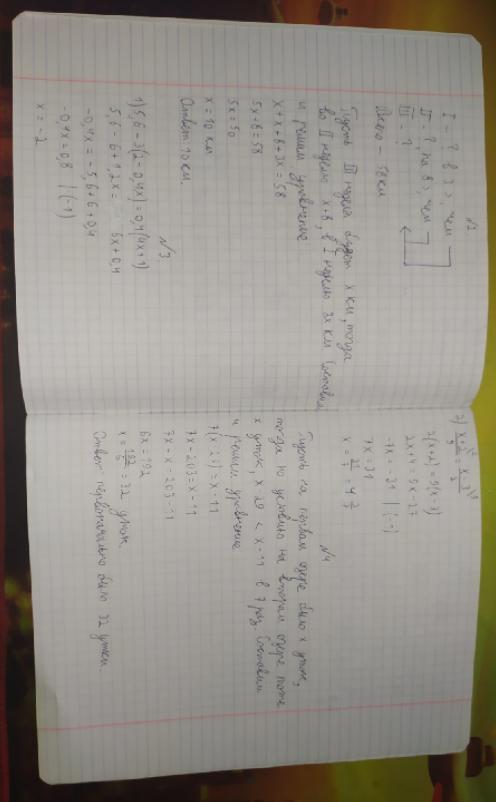 №2
I - ? в 3 >, чем
II - ?, на 8 >, чем
III - ?
Всего 58 км
Пусть III неделя будет x км, тогда
во II неделю x+8, в I неделю 3x км. Составим
и решим уравнение
x + x + 8 + 3x = 58
5x + 8 = 58
5x = 50
x = 10 км
Ответ: 10 км.
№3
1) 5,6 - 3(2 - 0,4x) = 0,4(4x + 1)
5,6 - 6 + 1,2x = 6x + 0,4
-0,4x = -5,6 + 6 + 0,4
-0,4x = 0,8 | (-1)
x = -2
2(x + 2) = 9(x - 3)
2x + 4 = 9x - 27
-7x = -31 | (-1)
7x = 31
x = 31/7 = 4 3/7
№4
Пусть на первом озере было x уток,
тогда по условию на втором озере тоже
x уток, x 29 < x - 11 в 7 раз. Составим
и решим уравнение
7(x - 29) = x - 11
7x - 203 = x - 11
7x - x = 203 - 11
6x = 192
x = 192/6 = 32 уток.
Ответ: первоначально было 32 утки.